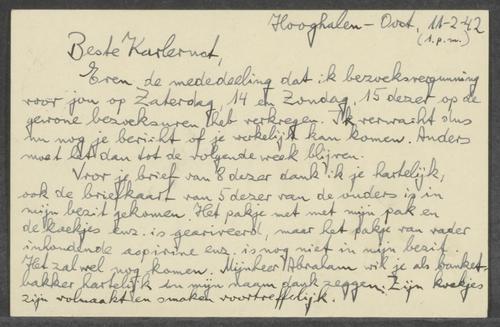 Hooghalen - Oost, 11-2-42
(1.p.m.)
Beste Karlernst,
Even de mededeeling dat ik bezoeksvergunning
voor jou op Zaterdag, 14 en Zondag, 15 dezer op de
gewone bezoeksuren heb verkregen. Ik verwacht dus
nu nog je bericht of je werkelijk kan komen. Anders
moet het dan tot de volgende week blijven.
Voor je brief van 8 dezer dank ik je hartelijk,
ook de briefkaart van 5 dezer van de ouders is in
mijn bezit gekomen. Het pakje met met mijn pak en
de koekjes enz. is gearriveerd, maar het pakje van vader
inhoudende aspirine enz. is nog niet in mijn bezit.
Het zal wel nog komen. Mijnheer Abraham wil je als banket-
bakker hartelijk in mijn naam dank zeggen. Zijn koekjes
zijn volmaakt en smaken voortreffelijk.